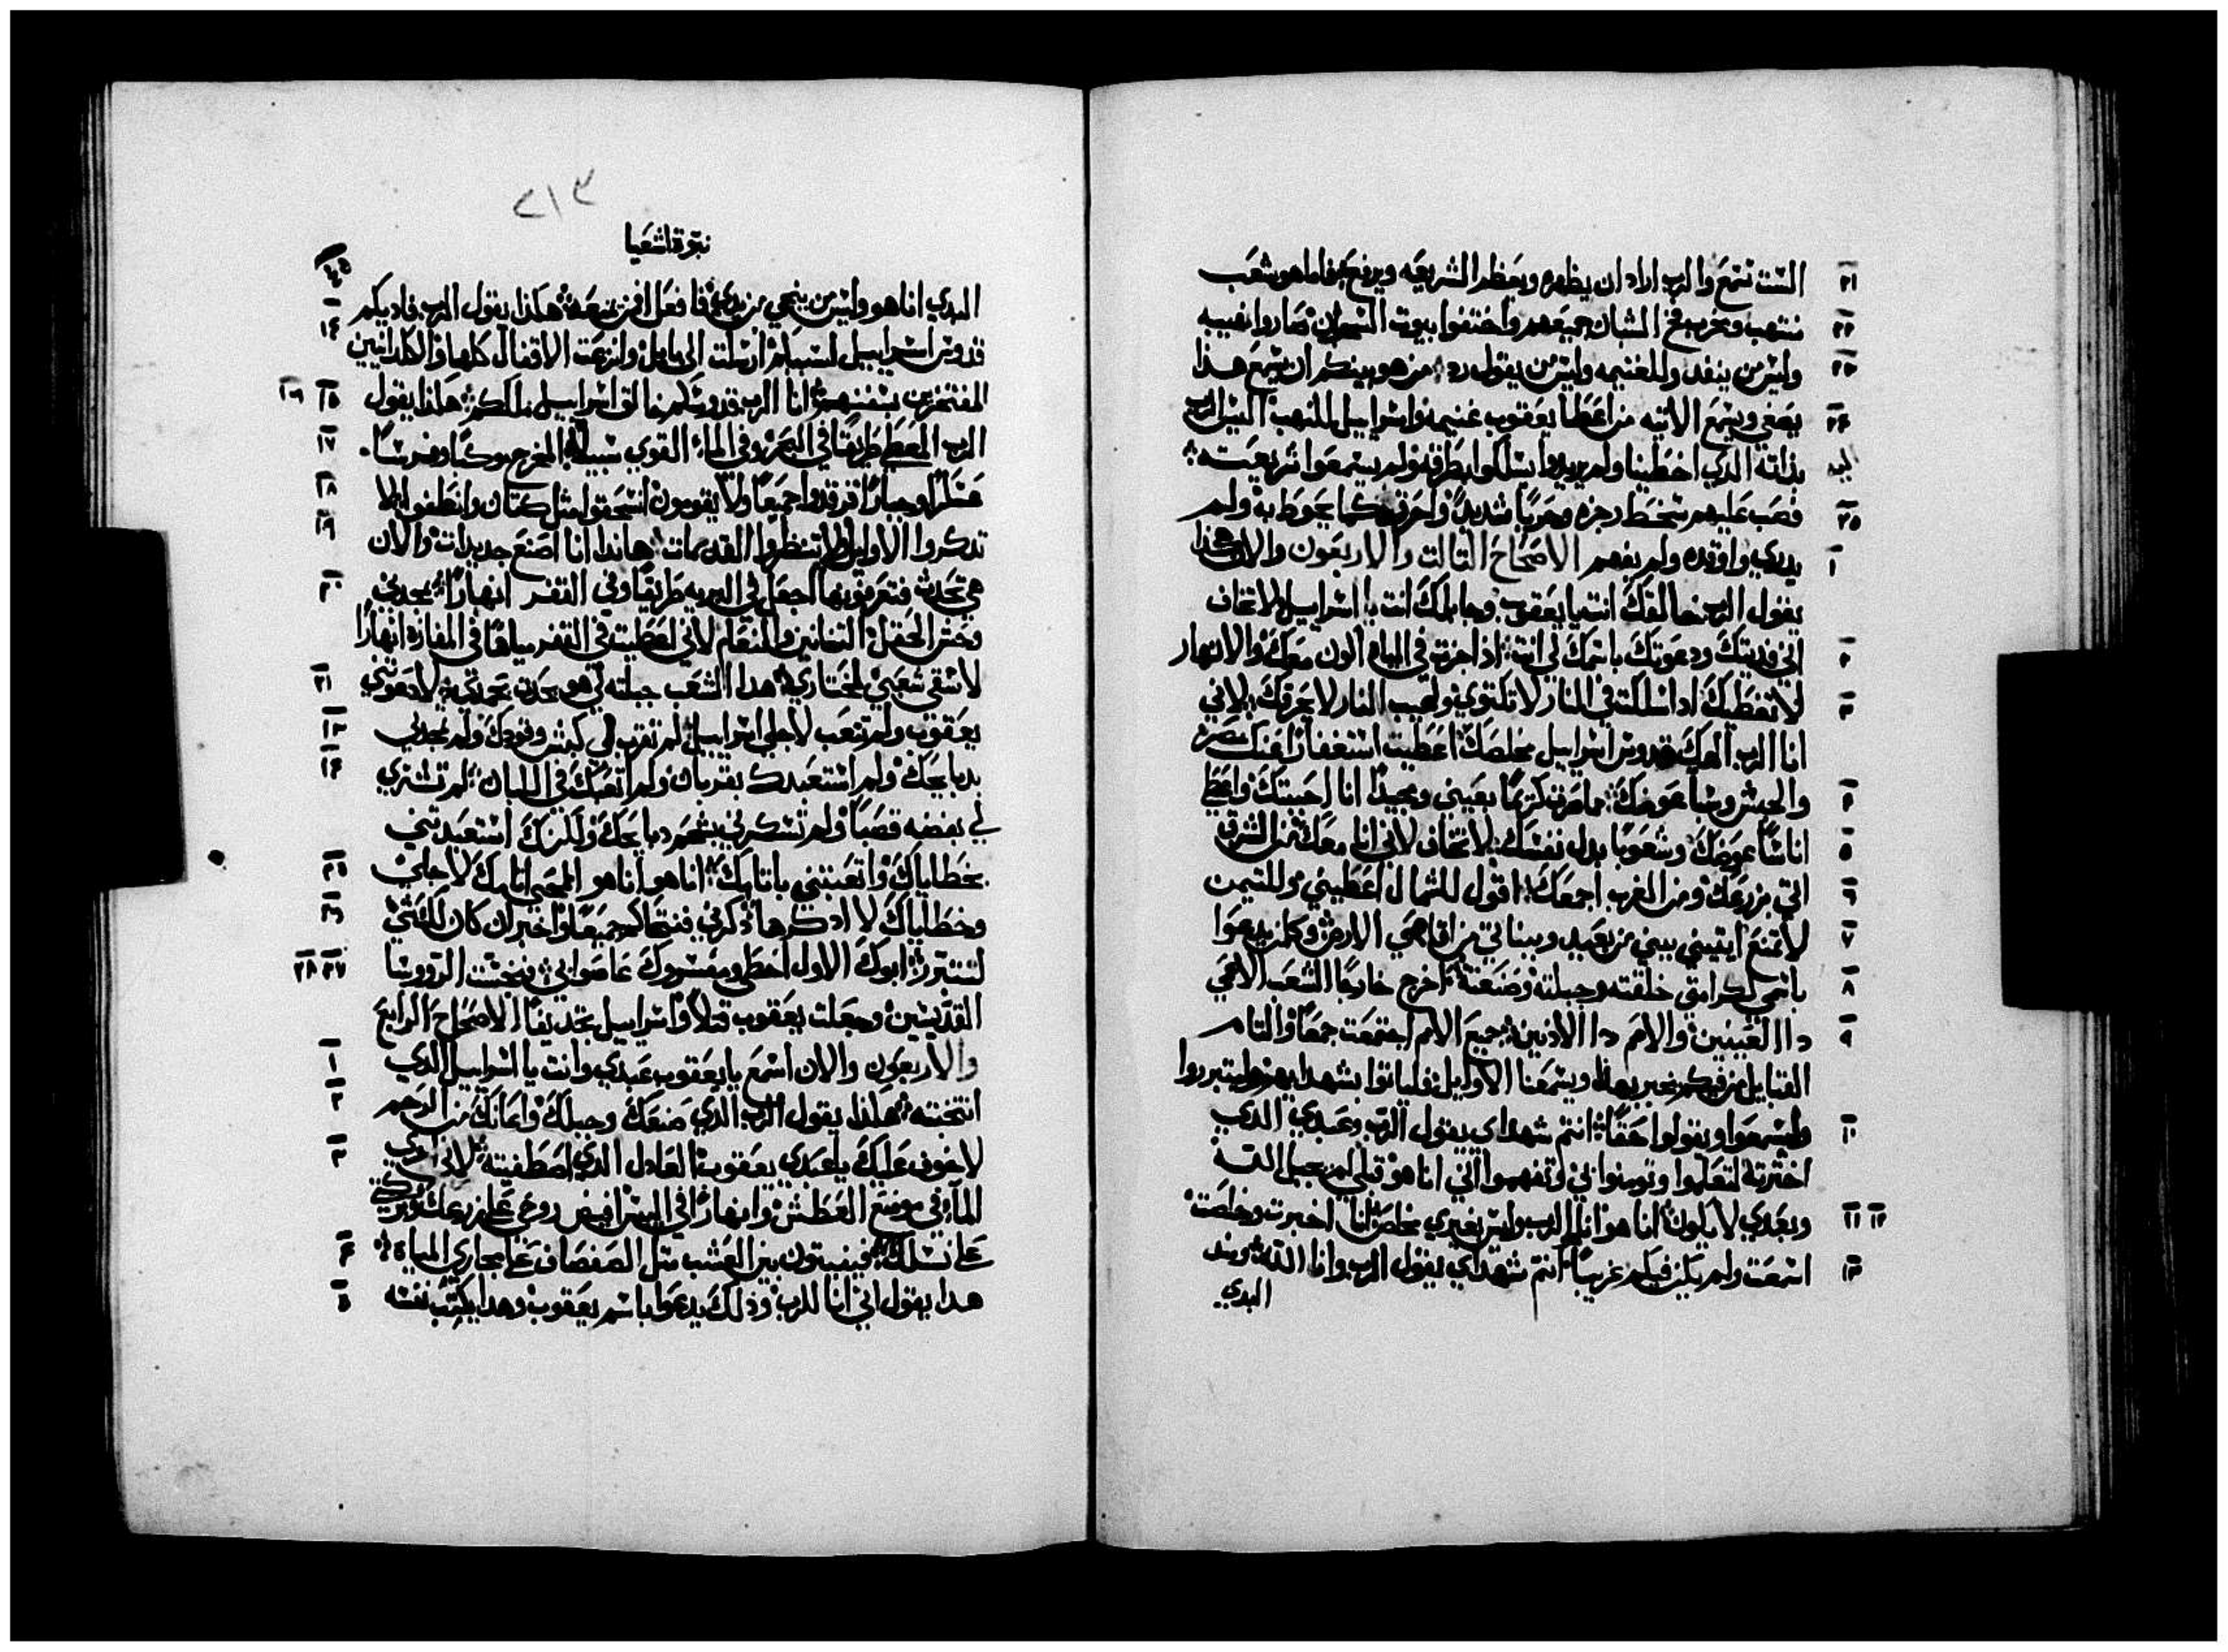 ٢١ الست تسمع والرب اراد ان يطهره ويعظم الشريعه ويرفع فاما هو شعب
٢٢ منتهب ومخرب فخ الشبان جميعهم واختفوا بيوت السجون صاروا نهيبه
٢٣ وليس من ينقد وللغنيمه وليس من يقول رد من هو بينكم ان يسمع هذا
٢٤ يصغي ويسمع الاتيه من اعطا يعقوب غنيمه واسراييل للنهب اليس الرب
بذاته الدي اخطينا ولم يريدوا يسلكوا بطرقه ولم يسمعوا شريعته
٢٥ فصب عليهم سخط رجزه وحربا شديدا واحرقه كما يحوط به ولم
١ يدري واوقده ولم يفهم الاصحاح التالت والاربعون والان هكذا
يقول الرب خالقك انت يا يعقوب وجابلك انت يا اسراييل لا تخاف
٢ اني فديتك ودعوتك باسمك لي انت اذا اجزت في المياه اكون معك والانهار
٣ لا تغطيك ادا سلكت في النار لا تكتوي ولهيب النار لا يحرقك لاني
انا الرب الهك قدوس اسراييل مخلصك اعطيت استغفارا عنك مصر
٤ والحبش وسبا عوضك مما صرت كريما بعيني ومجيدا انا احببتك واعطي
٥ اناسا عوضك وشعوبا بدل نفسك لا تخاف لاني انا معك من الشرق
٦ اتي بزرعك ومن الغرب اجمعك اقول للشمال اعطيني وللتيمن
٧ لا تمنع ايتيني ببني من بعيد وبناتي من اقاصي الارض وكل من يدعوا
٨ باسمي لكرامتي خلقته وجبلته وصنعته اخرج خارجا الشعب الاعمي
٩ دا العينين والاصم دا الادنين جميع الامم اجتمعت جمعا والتام
القبايل من فيكم يخبر بهذا ويسمعنا الاوايل فلياتوا بشهدايهم وليتبرروا
١٠ وليسمعوا ويقولوا حقا انتم شهداي يقول الرب وعبدي الدي
اخترته لتعلموا وتومنوا بي وتفهموا اني انا هو قبلي لم يجبل اله
١١ ١٢ وبعدي لا يكون انا هو انا الرب وليس بغيري مخلص انا اخبرت وخلصت
١٣ اسمعت ولم يكن فيكم غريبا انتم شهداي يقول الرب وانا الله ومند
البدي
٣١٢
نبوة اشعيا
البدي انا هو وليس من ينجي من يدي انا افعل فمن يمنعه هكذا يقول الرب فاديكم
١٤ قدوس اسراييل لسببكم ارسلت الي بابل وانزعت الاقفال كلها والكلدانيين
١٥ ١٦ المفتخرين بسفنهم انا الرب قدوسكم خالق اسراييل ملككم هكذا يقول
١٧ الرب المعطي طريقا في البحر وفي الماء القوي سبيلا المخرج مركبا وفرسا
١٨ عسكرا وجبارا فرقدوا جميعا ولا يقومون انسحقوا مثل كتان وانطفوا لا
١٩ تدكروا الاوايل ولا تنظروا القديمات هاندا انا اصنع جديدات والان
٢٠ هي تحدث فتعرفونها اجعل في البريه طريقا وفي القفر انهارا يمجدني
وحش الحقل التنانين والنعام لاني اعطيت في القفر مياها في المفازه انهارا
٢١ لاسقي شعبي لمختاري هدا الشعب جبلته لي هو يحدث بحمدي لا دعوتني
٢٣ يعقوب ولم تتعب لاجلي اسراييل لم تقرب لي كبش وقودك ولم تمجدني
٢٤ بدبايحك ولم استعبدك بقربان ولم اتعبك في اللبان لم تشتري
لي بفضه قصبا ولم تسكرني بشحم دبايحك ولكنك استعبدتني
٢٥ بخطاياك واتعبتني باتامك انا هو انا هو الماحي اتامك لاجلي
٢٦ وخطاياك لا ادكرها دكرني فنتحاكم جميعا واخبر ان كان لك شي
٢٧ ٢٨ لتتبرر ابوك الاول اخطي ومفسروك عاصوا بي فنجست الرووسا
القديسين وجعلت يعقوب قتلا واسراييل تجديفا الاصحاح الرابع
١ والاربعون والان اسمع يا يعقوب عبدي وانت يا اسراييل الدي
٢ انتخبته هكذا يقول الرب الدي صنعك وجبلك واعانك من الرحم
٣ لا تخف يا عبدي يعقوب العادل الدي اصطفيته لاني
الماء في موضع العطش وانهارا في اليبس افيض روحي علي زرعك وبركتي
٤ علي نسلك فينبتون بين العشب مثل الصفصاف علي مجاري المياه
٥ هدا يقول اني انا للرب وذلك يدعوا باسم يعقوب وهدا يكتب نفسه